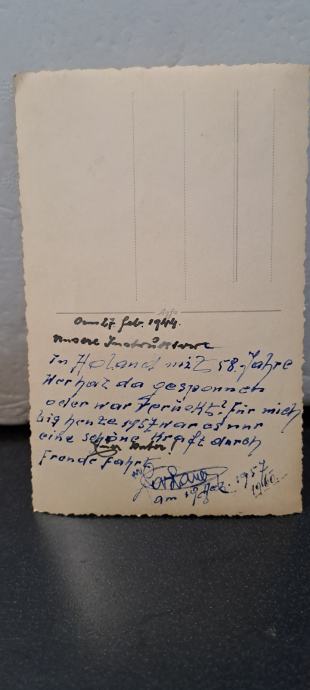 Agfa
Am 27. Feb. 1944.
Unsere Instrukteure
In Holand mit 58. Jahre
Wer hat da gesponnen
oder war Verückt? Für mich
bis heute 1957 war es nur
eine schöne Kraft durch
Freude fahrt.
am 1957